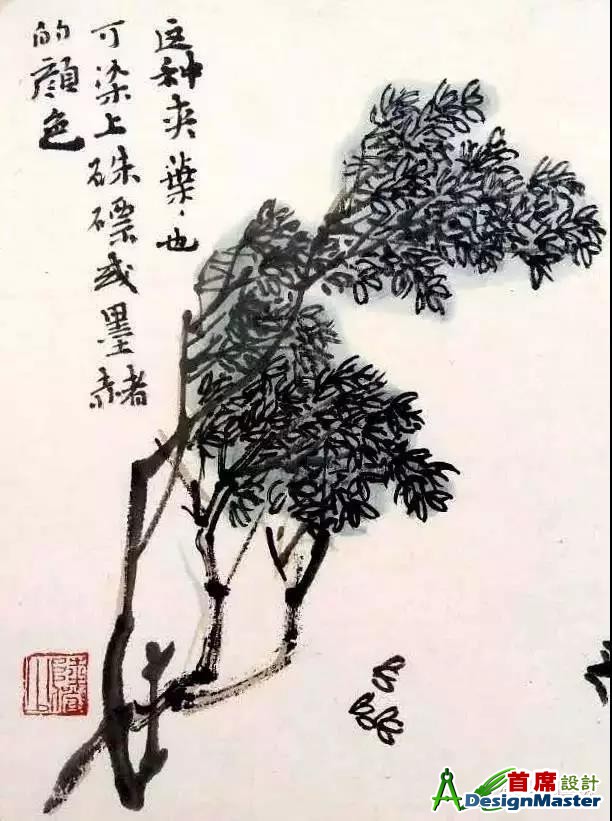 这种夾葉、也
可染上硃磦或墨赭
的顏色
首席設計
DesignMaster